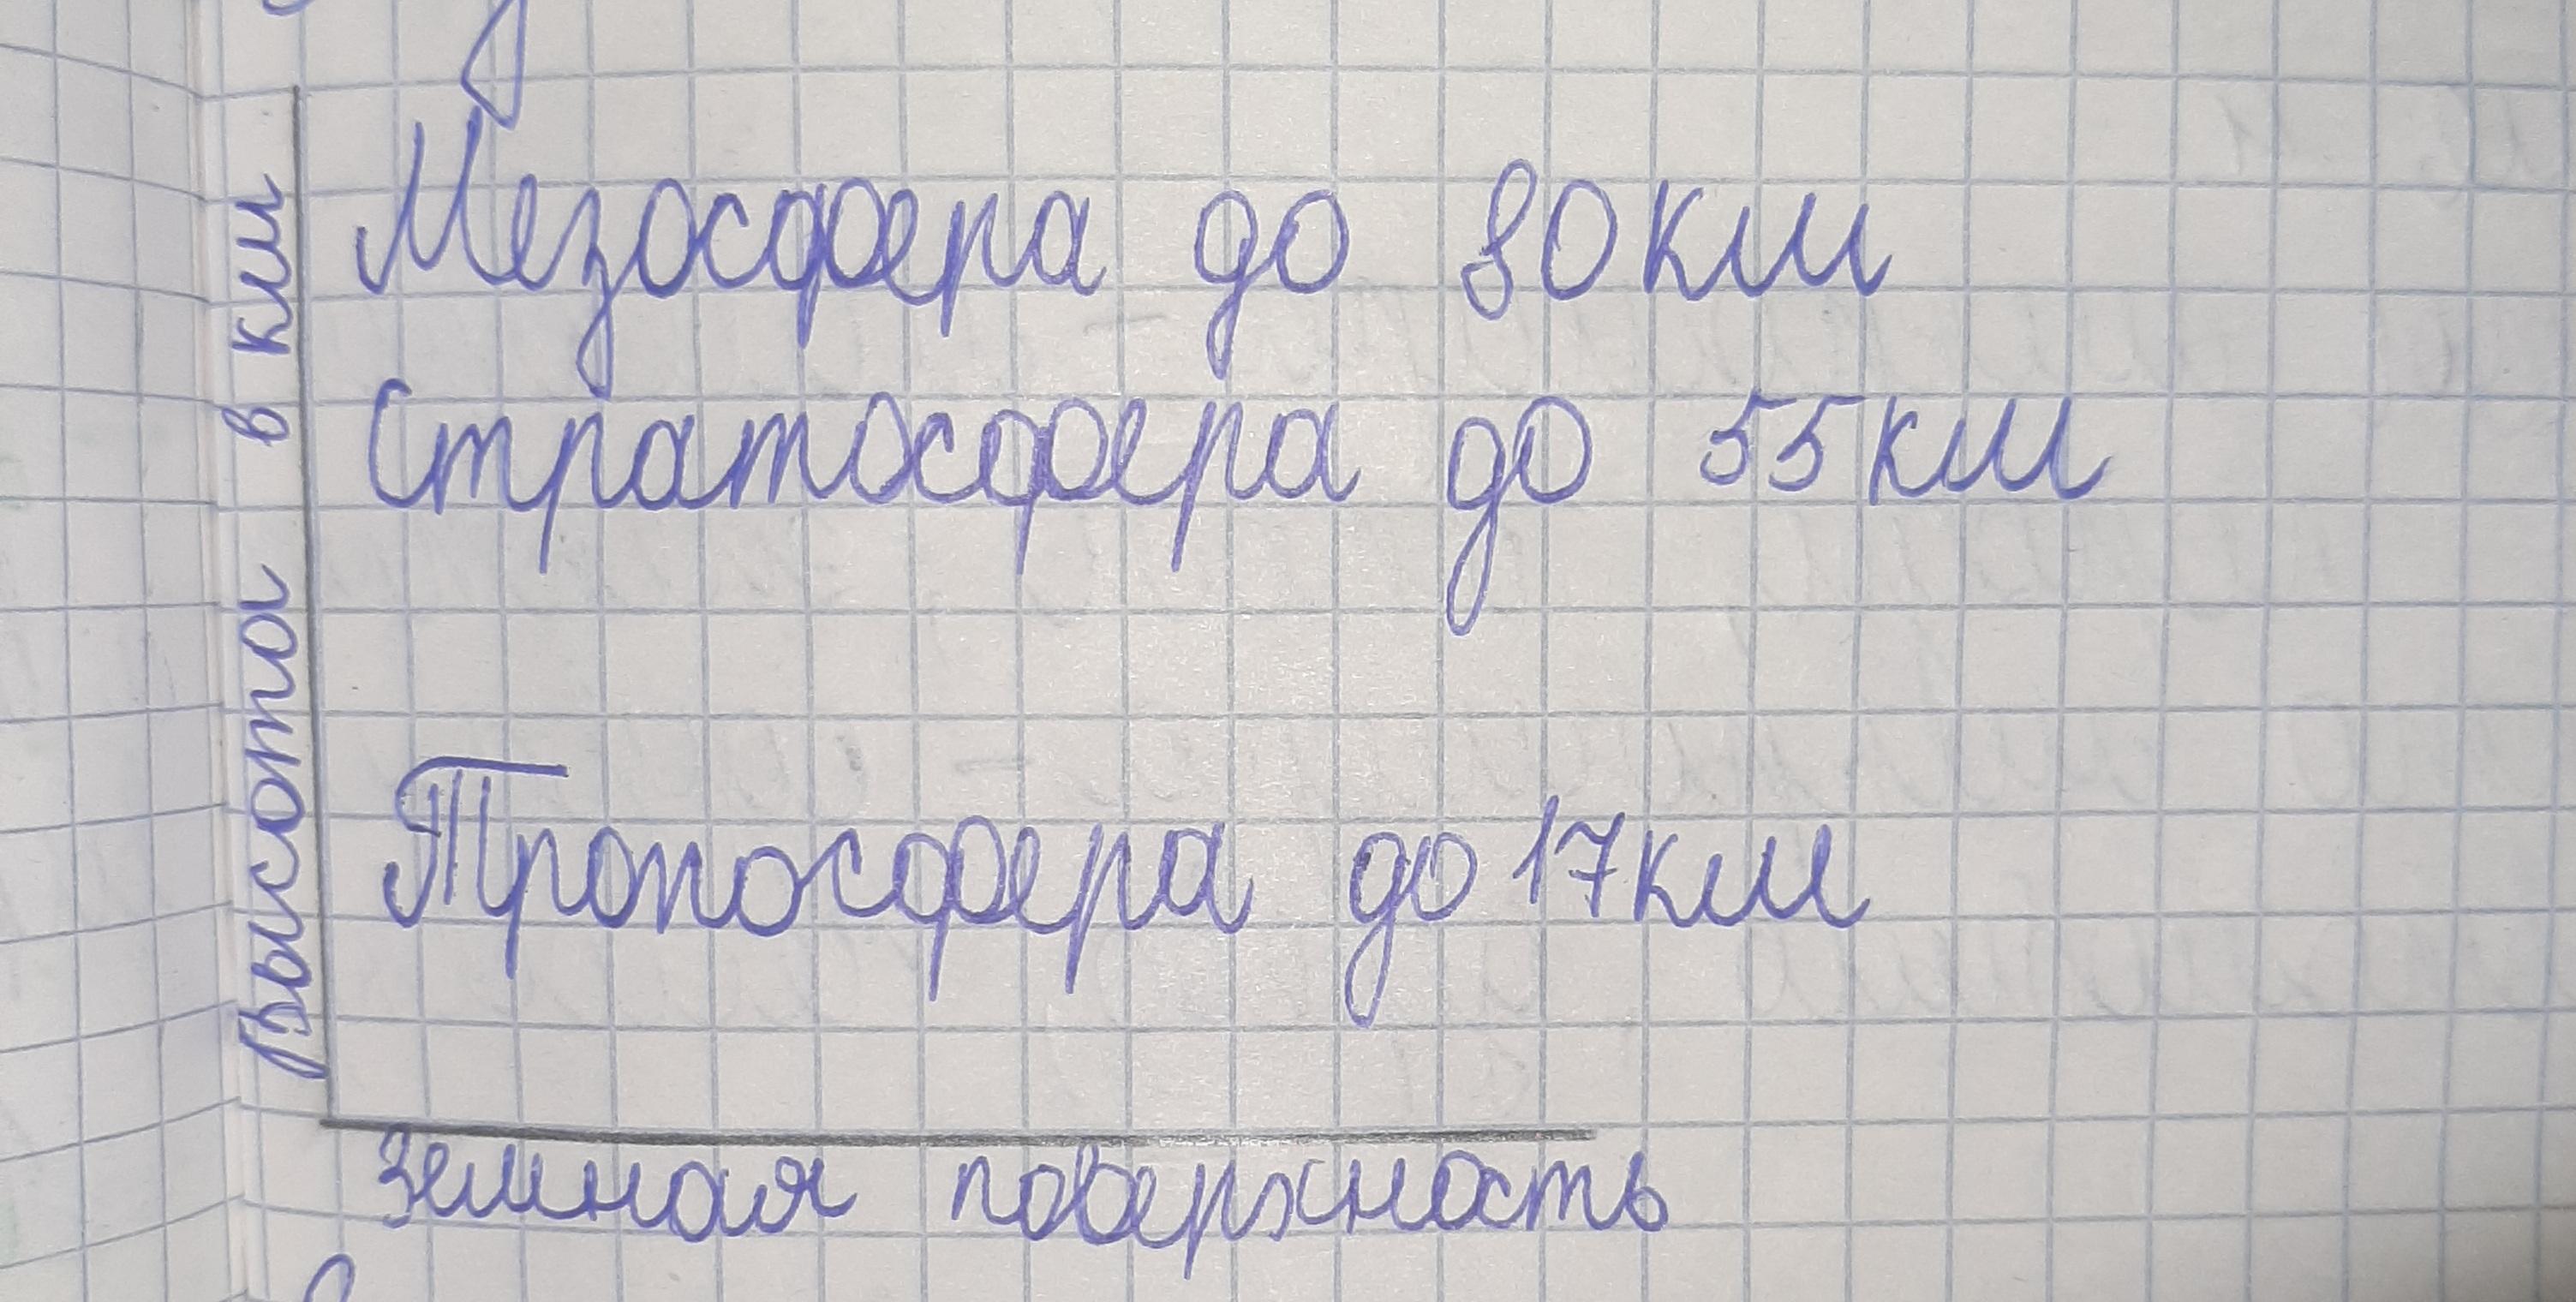 Высота в км
Мезосфера до 80км
Стратосфера до 55км
Тропосфера до 17км
Земная поверхность